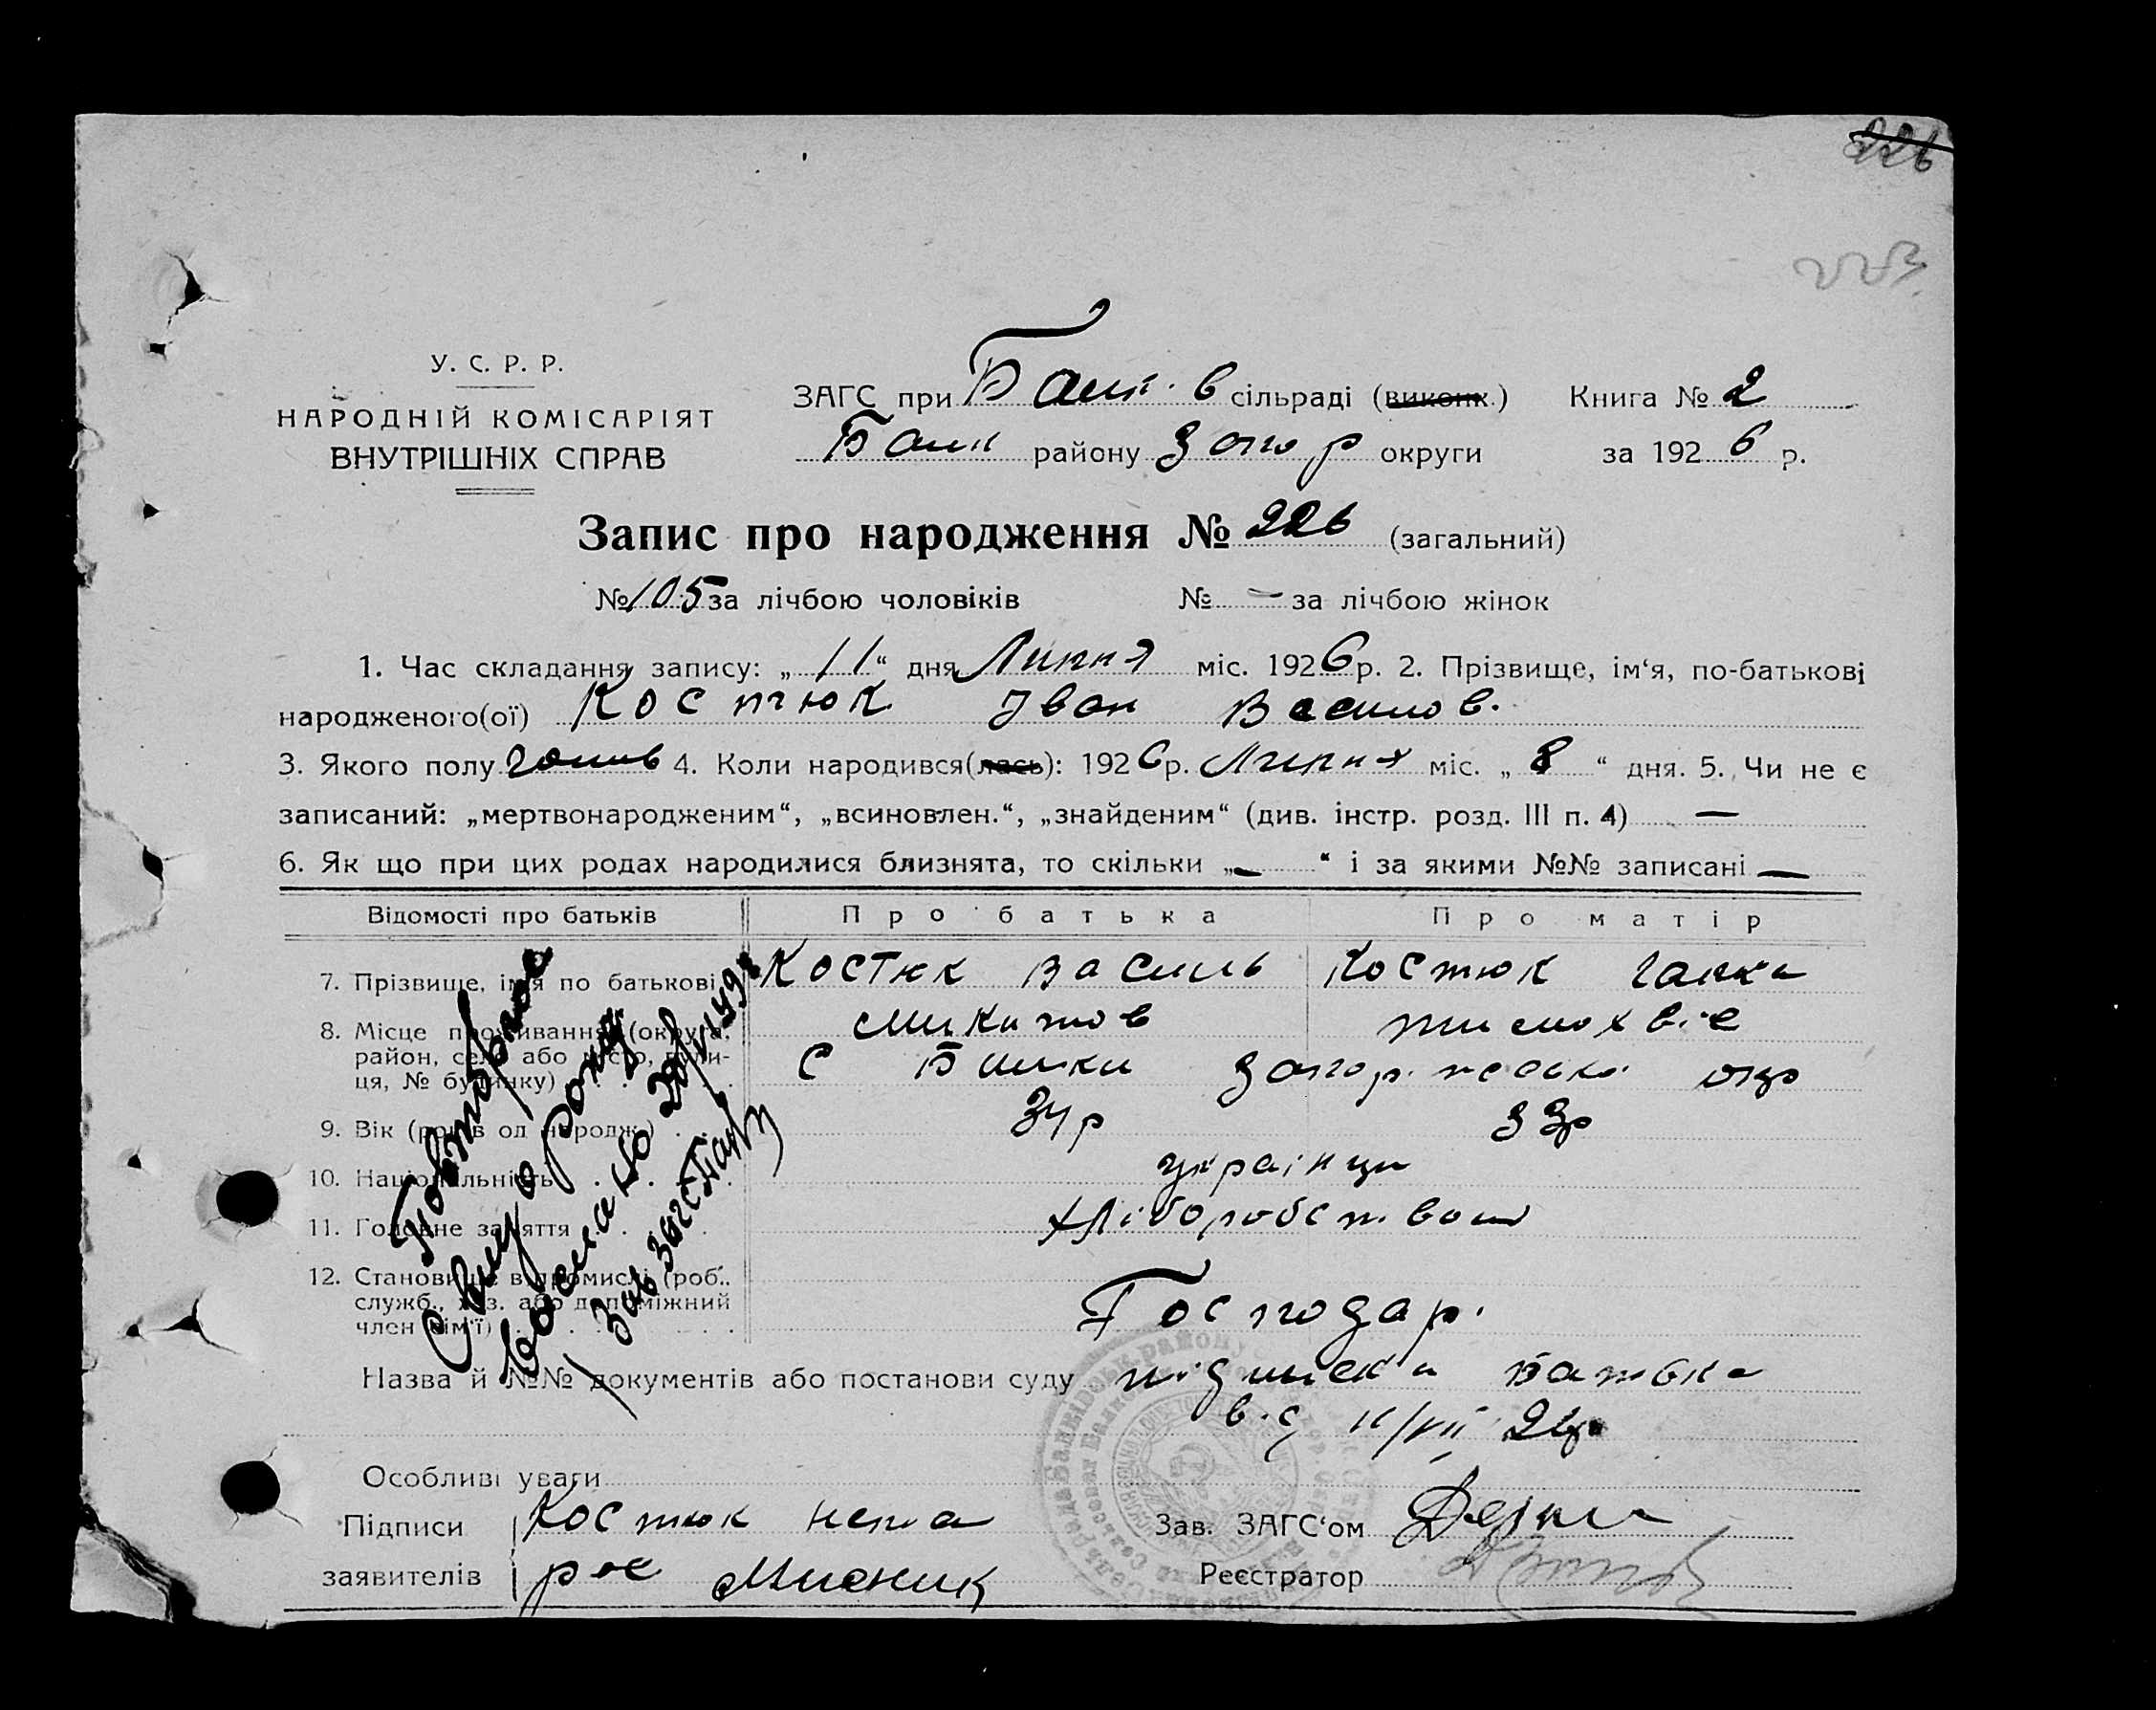 226
223
У. С. Р. Р.
НАРОДНІЙ КОМІСАРІЯТ
ВНУТРІШНІХ СПРАВ
ЗАГС при сільраді (виконк.) Книга № 2
району Запор округи за 1926 р.
Запис про народження № 226 (загальний)
№ 105 за лічбою чоловіків № — за лічбою жінок
1. Час складання запису: „11“ дня Липня міс. 1926 р. 2. Прізвище, ім‘я, по-батькові
народженого(ої) Костюк Іван Васильов.
3. Якого полу чолов 4. Коли народився(лась): 1926 р. Липня міс. „8“ дня. 5. Чи не є
записаний: „мертвонародженим“, „всиновлен.“, „знайденим“ (див. інстр. розд. III п. 4) —
6. Як що при цих родах народилися близнята, то скільки „—“ і за якими №№ записані —
Відомості про батьків Про батька Про матір
7. Прізвище, ім‘я по батькові Костюк Василь Костюк Ганна
Микитов Тимохв.е
8. Місце проживання (округа,
район, село або місто, вули-
ця, № будинку) С Запор. окр
9. Вік (років од народж.) 34 р 33р
10. Національність українци
11. Головне заняття хліборобством
12. Становище в промислі (роб.,
служб., хаз. або допоміжний
член сім‘ї) Господар.
Назва й №№ документів або постанови суду підписка батька
від 11/VII 26р
Особливі уваги
Підписи Костюк непа Зав. ЗАГС‘ом
заявителів рое Мисник Реєстратор
Повторное
Св-ву о рожд
выслано
Зав Загс